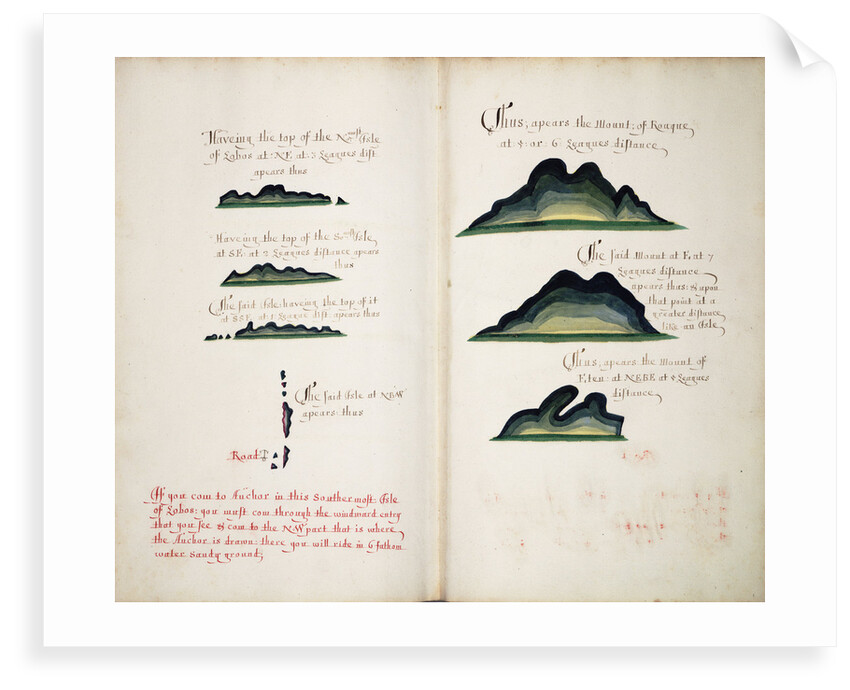 Haveing the top of the No:most Isle
of Lobos at: NE at: 3 Leagues dist
apears thus
Haveing the top of the So:most Isle
at SE: at 2 Leagues distance apears
thus
The said Isle: haveing the top of it
at SSE at: 1: League dist: apears thus
The said Isle at NBW
apears: thus
Road
If you com to Anchor in this Southermost Isle
of Lobos: you must com through the windward entry
that you see & com to the NW part that is where
the Anchor is drawn: there you will ride in 6 fathom
water Sandy ground;
Thus; apears the Mount; of Rouque
at 4: or: 6: Leagues distance
The said Mount at E at 7
Leagues distance
apears thus: & upon
that point at a
greater distance
like an Isle
Thus; apears the Mount of
Eten: at NEBE at 4 Leagues
distance